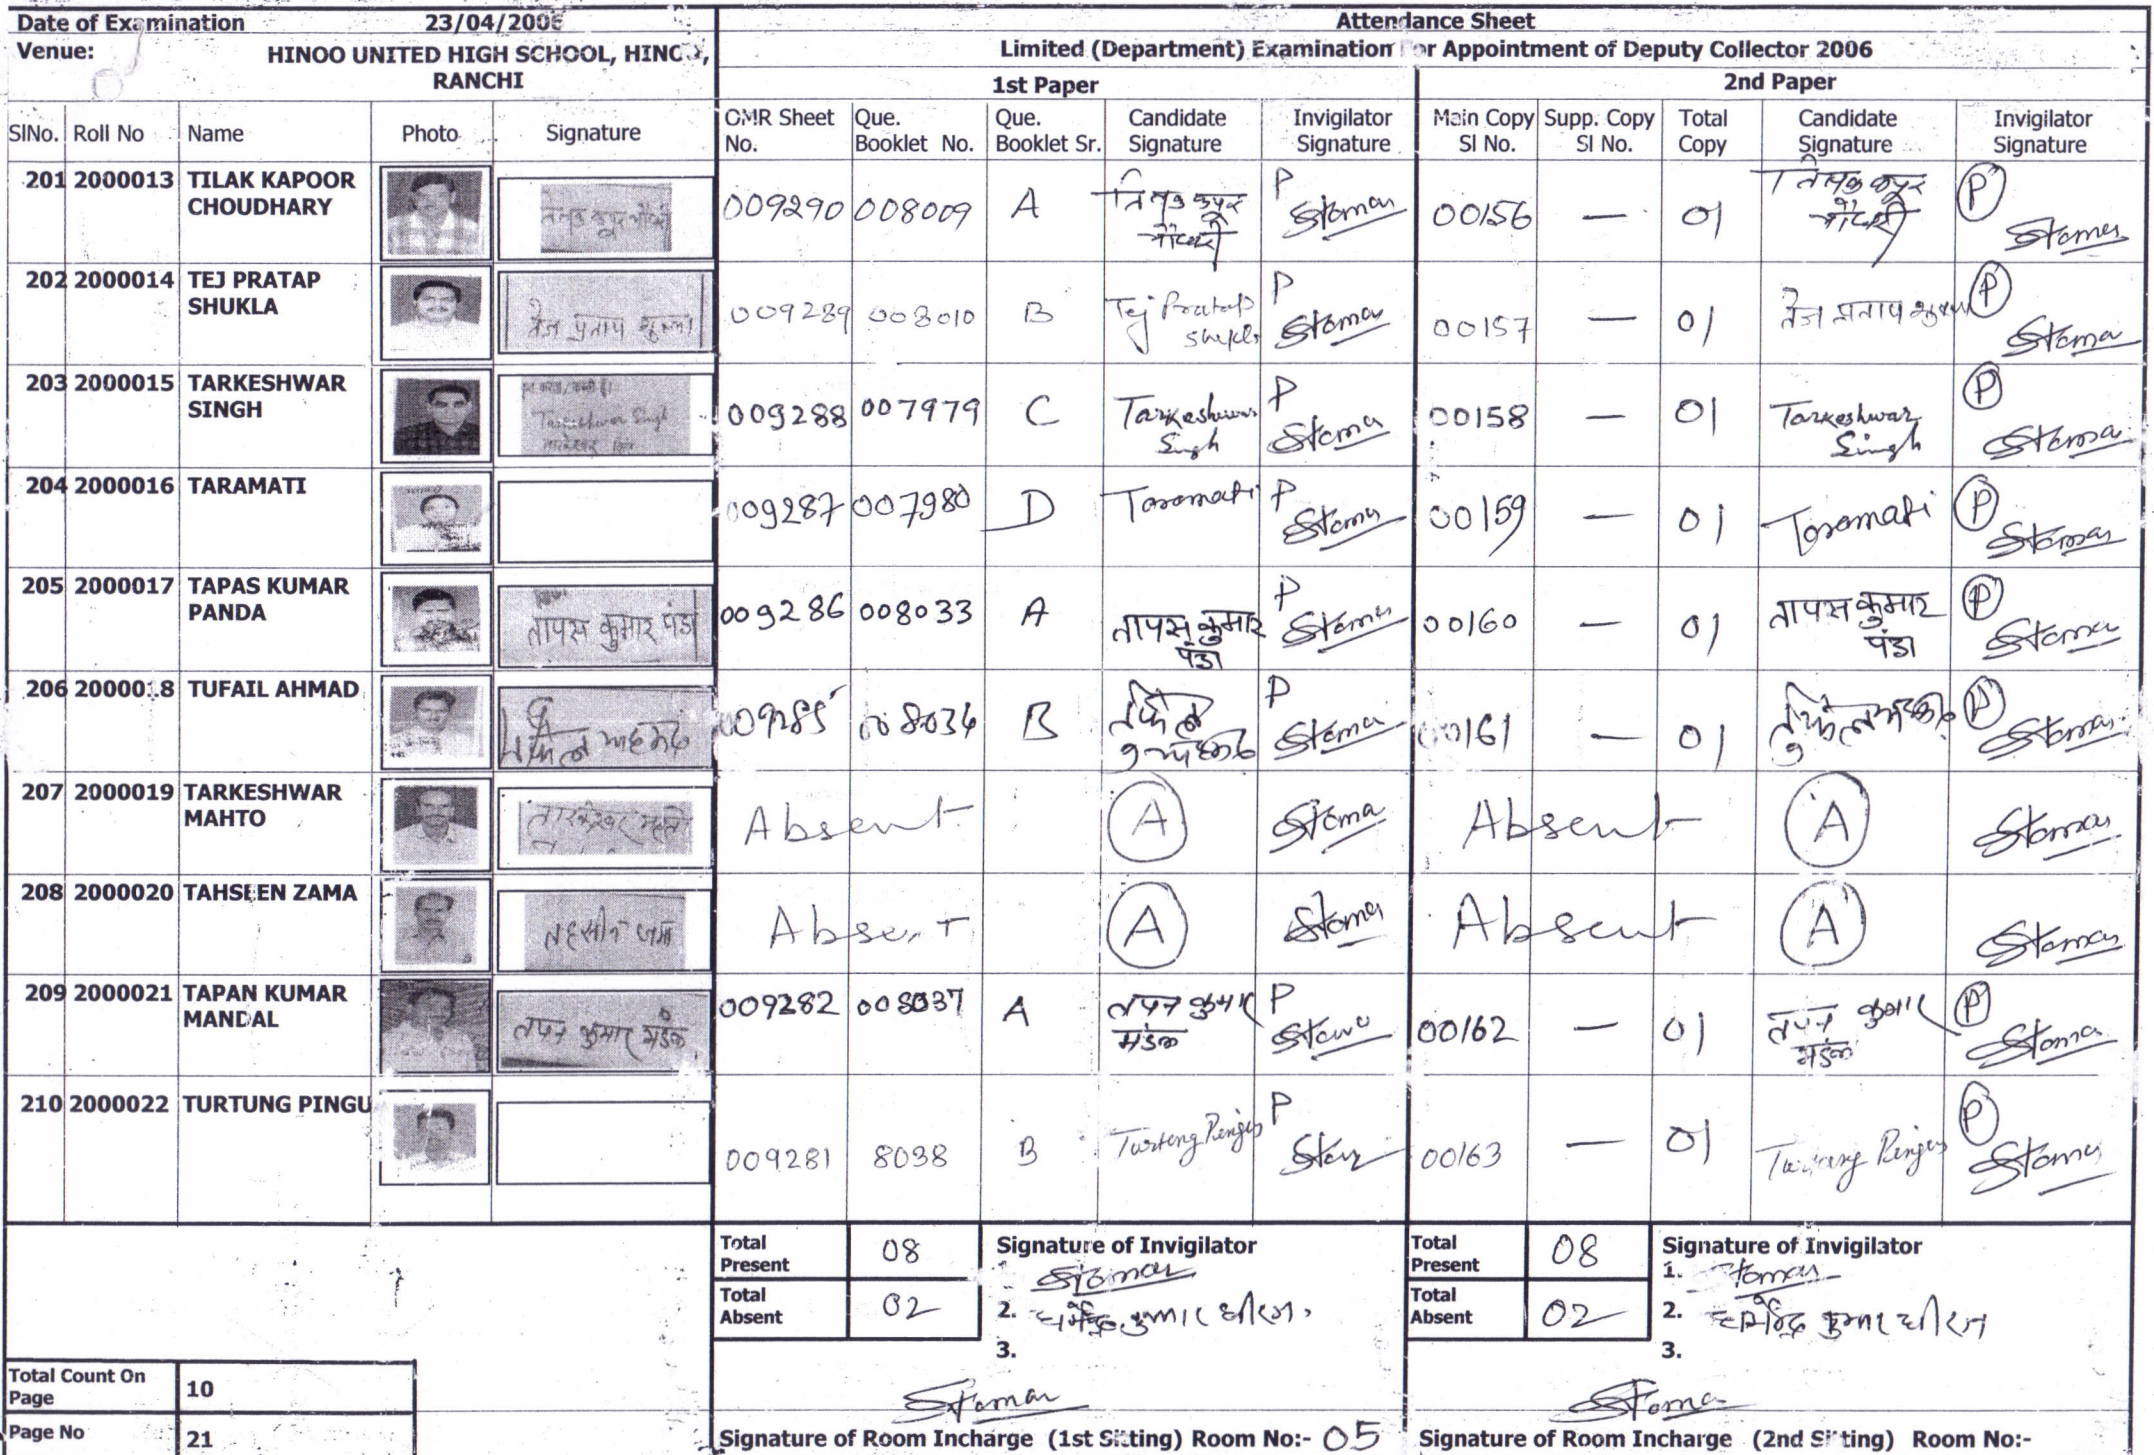 Date of Examination 23/04/2006
Attendance Sheet
Venue: HINOO UNITED HIGH SCHOOL, HINOO, RANCHI
Limited (Department) Examination For Appointment of Deputy Collector 2006
1st Paper 2nd Paper
SlNo. Roll No Name Photo Signature OMR Sheet No. Que. Booklet No. Que. Booklet Sr. Candidate Signature Invigilator Signature Main Copy Sl No. Supp. Copy Sl No. Total Copy Candidate Signature Invigilator Signature
201 2000013 TILAK KAPOOR CHOUDHARY 009290 008009 A तिलक कपूर चौधरी P Stomar 00156 — 01 तिलक कपूर चौधरी P Stomar
202 2000014 TEJ PRATAP SHUKLA तेज प्रताप शुक्ला 009289 008010 B Tej Pratap Shukla P Stomar 00157 — 01 तेज प्रताप शुक्ला P Stomar
203 2000015 TARKESHWAR SINGH Tarkeshwar Singh 009288 007979 C Tarkeshwar Singh P Stomar 00158 — 01 Tarkeshwar Singh P Stomar
204 2000016 TARAMATI 009287 007980 D Taramati P Stomar 00159 — 01 Taramati P Stomar
205 2000017 TAPAS KUMAR PANDA तापस कुमार पंडा 009286 008033 A तापस कुमार पंडा P Stomar 00160 — 01 तापस कुमार पंडा P Stomar
206 2000018 TUFAIL AHMAD तुफैल अहमद 009285 008034 B तुफैल अहमद P Stomar 00161 — 01 तुफैल अहमद P Stomar
207 2000019 TARKESHWAR MAHTO तारकेश्वर महतो Absent A Stomar Absent A Stomar
208 2000020 TAHSEEN ZAMA तहसीन जमा Absent A Stomar Absent A Stomar
209 2000021 TAPAN KUMAR MANDAL तपन कुमार मंडल 009282 008037 A तपन कुमार मंडल P Stomar 00162 — 01 तपन कुमार मंडल P Stomar
210 2000022 TURTUNG PINGU 009281 8038 B Turtung Pingua P Stomar 00163 — 01 Turtung Pingua P Stomar
Total Present 08 Signature of Invigilator Total Present 08 Signature of Invigilator
Stomar 1. Stomar
Total Absent 02 2. धर्मेन्द्र कुमार धीरज Total Absent 02 2. धर्मेन्द्र कुमार धीरज
3. 3.
Total Count On Page 10
Stomar Stomar
Page No 21
Signature of Room Incharge (1st Sitting) Room No:- 05 Signature of Room Incharge (2nd Sitting) Room No:-